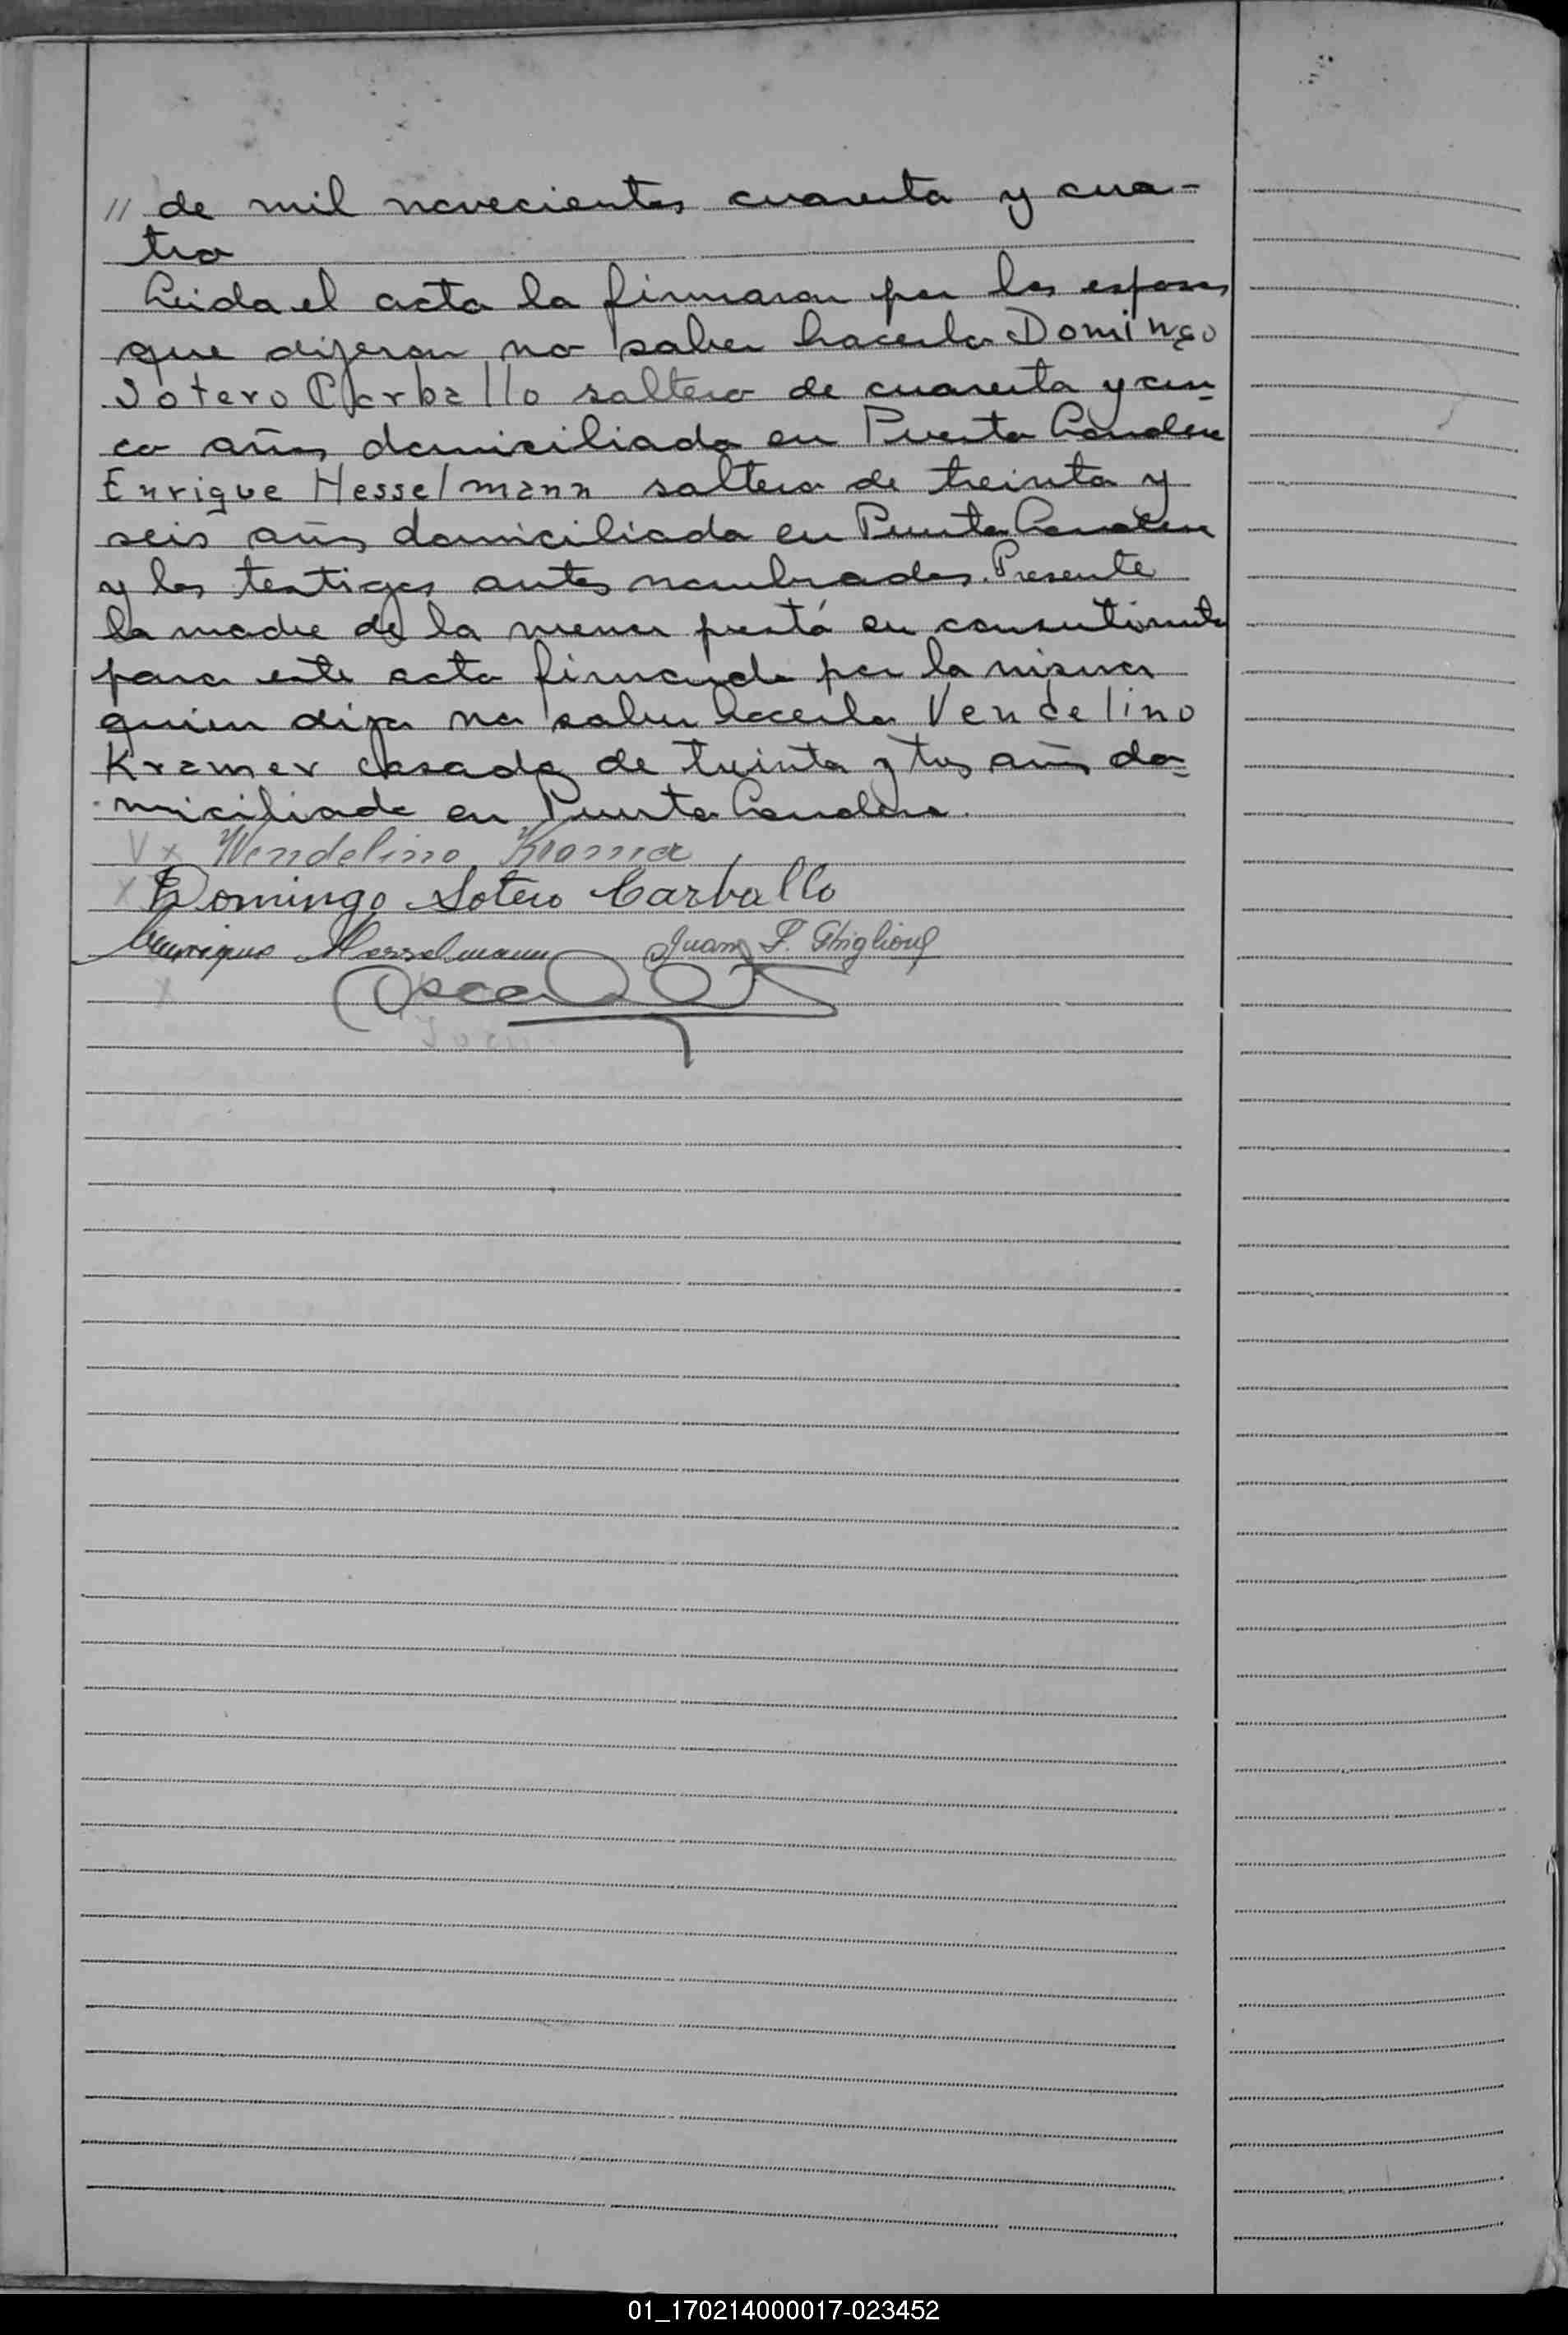 // de mil novecientos cuarenta y cua-
tro
Leida el acta la firmaron por los esposos
que dijeron no saber hacerlo Domingo
Sotero Carballo soltero de cuarenta y cin=
co años domiciliado en Puerto Candere
Enrique Hesselmann soltero de treinta y
seis años domiciliado en Puerto
y los testigos antes nombrados. Presente
la madre de la menor prestó su consentimiento
para este acto firmando por la misma
quien dijo no saber hacerlo Vendelino
Kramer casado de treinta y tres años do=
miciliado en Puerto Candere.
Vx Wendelino Kramer
x Domingo Sotero Carballo
Enrique Hesselmann Juan F. Ghiglione
x Oscar
01_170214000017-023452